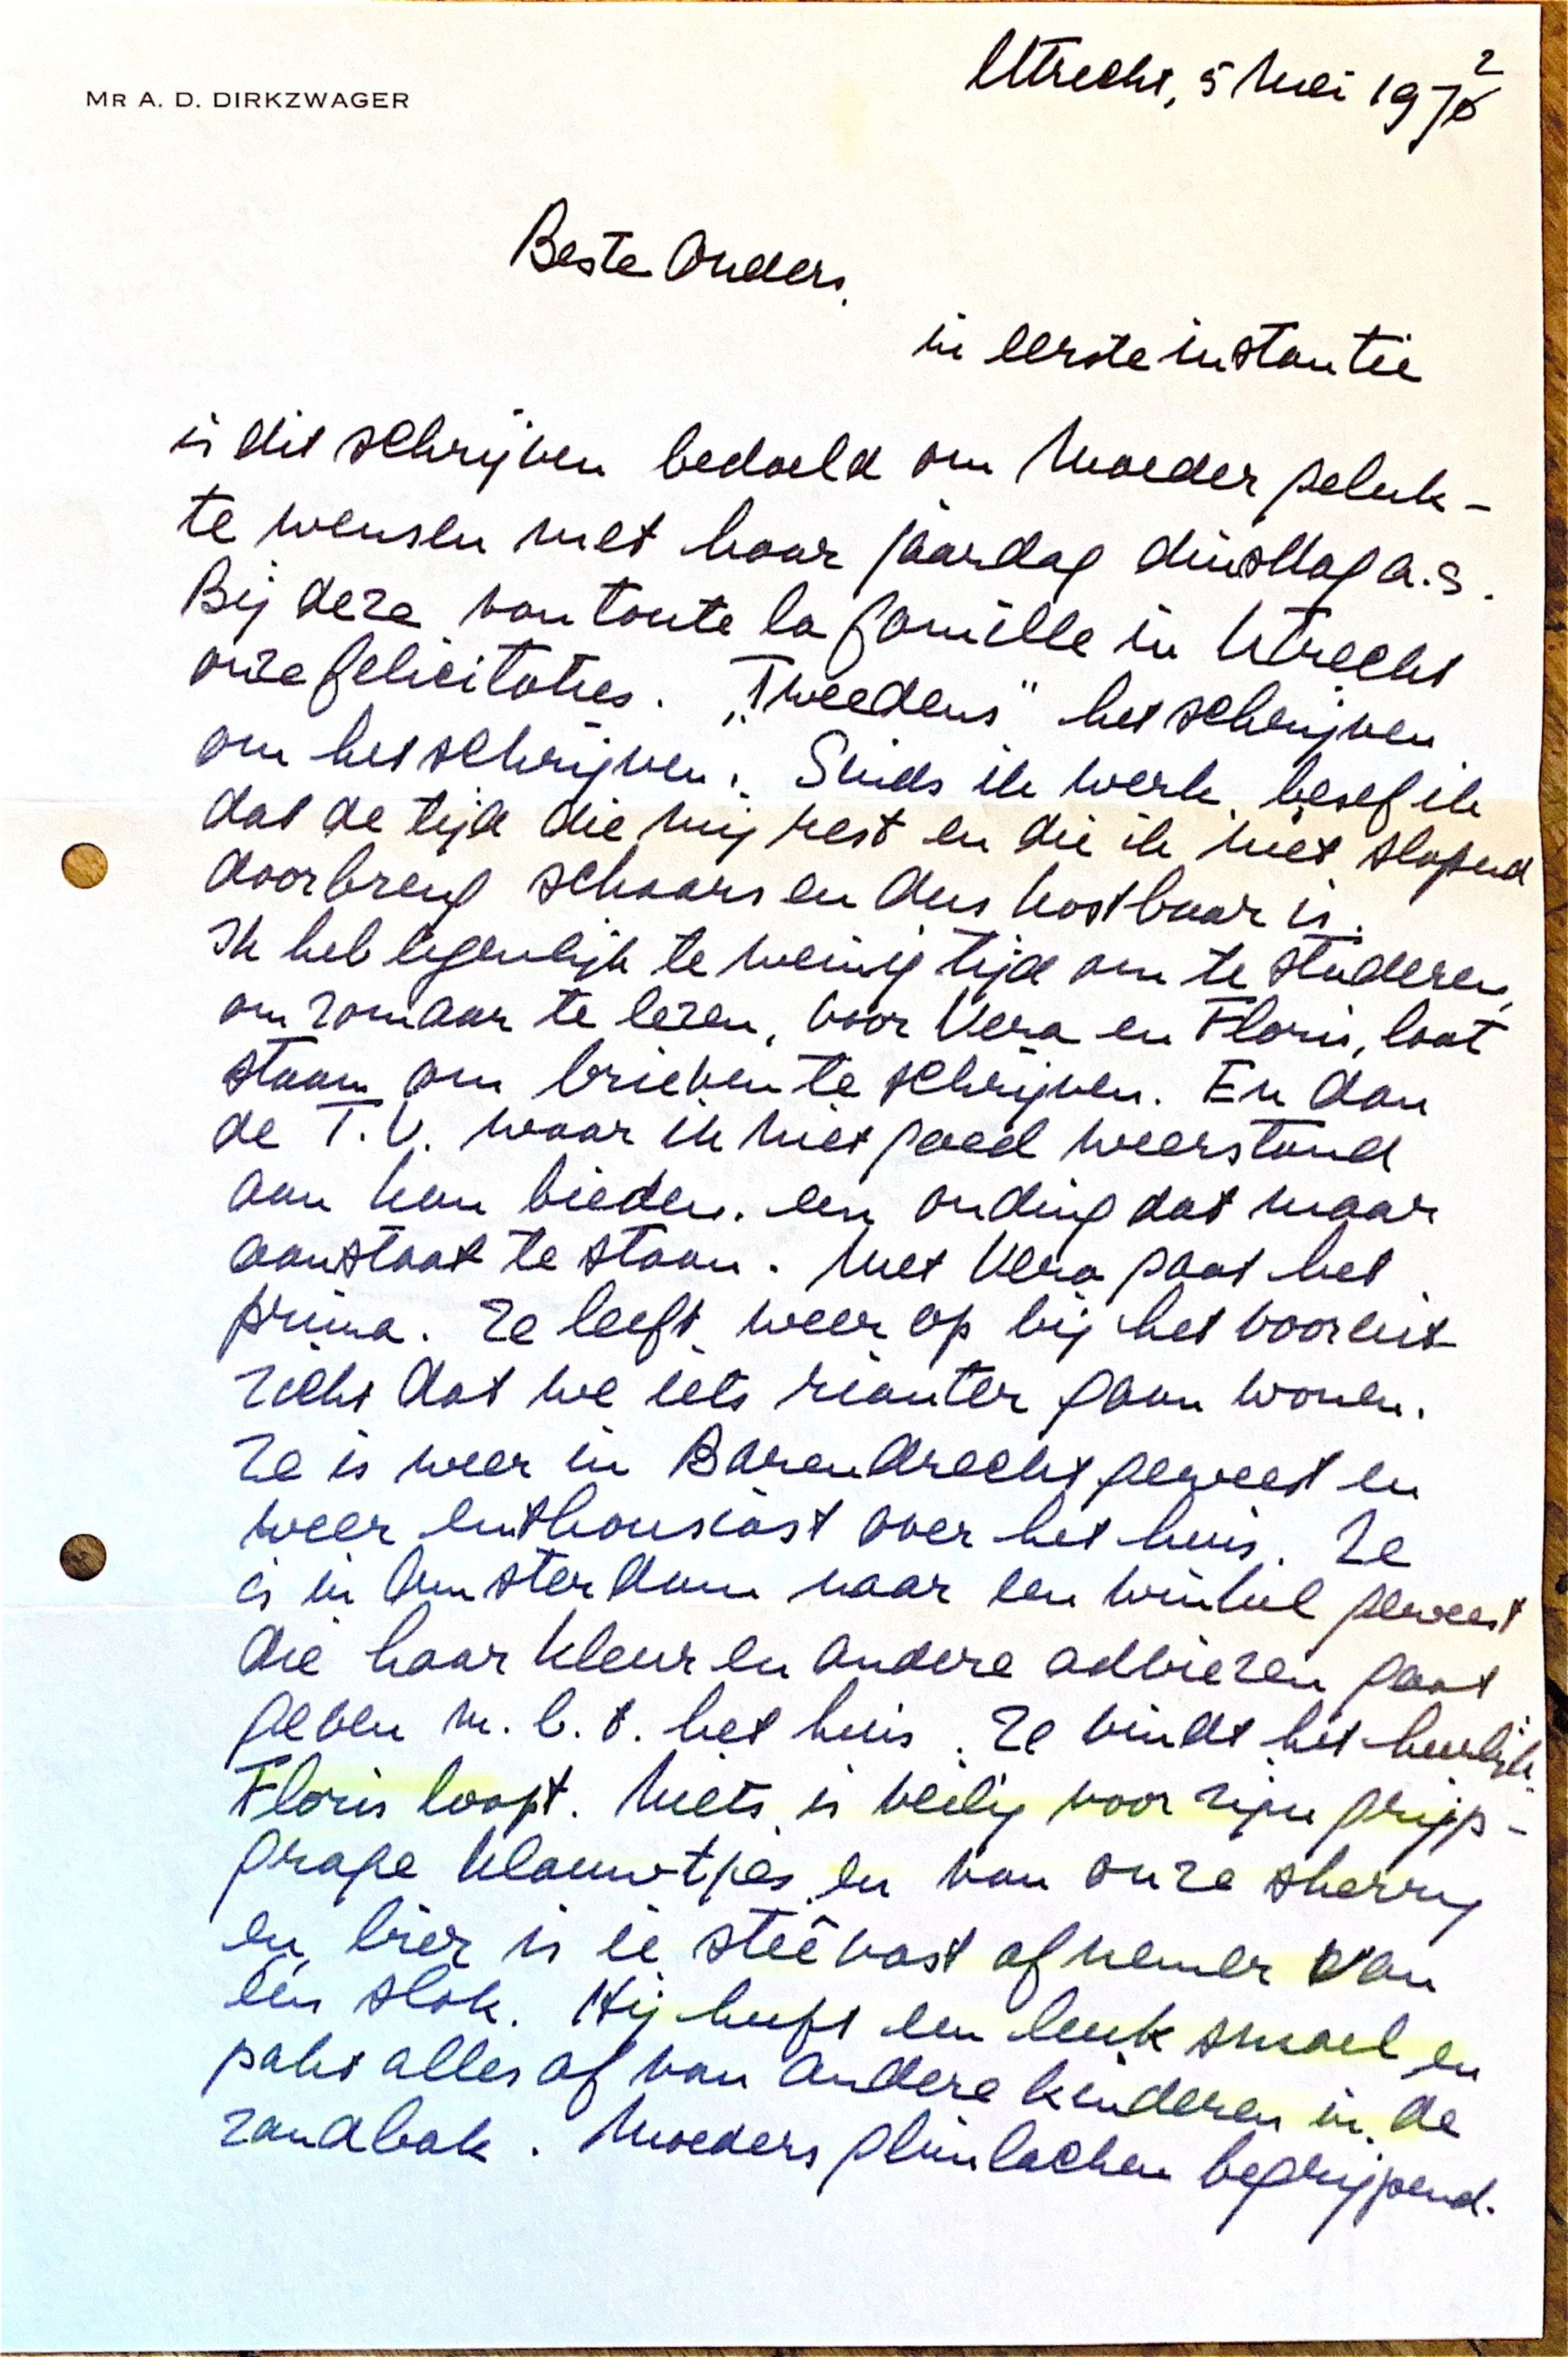 MR A. D. DIRKZWAGER
Utrecht, 5 Mei 1972
Beste Ouders,
in eerste instantie
is dit schrijven bedoeld om Moeder geluk-
te wensen met haar jaardag dinsdag a.s.
Bij deze van toute la famille in Utrecht
onze felicitaties. „Tweedens" het schrijven
om het schrijven. Sinds ik werk, besef ik
dat de tijd die mij rest en die ik niet slapend
doorbreng schaars en dus kostbaar is.
Ik heb eigenlijk te weinig tijd om te studeren,
om zomaar te lezen, voor Vera en Floris, laat
staan om brieven te schrijven. En dan
de T.V. waar ik niet goed weerstand
aan kan bieden. een onding dat maar
aanstaat te staan. Met Vera gaat het
prima. Ze leeft weer op bij het vooruit
zicht dat we iets rianter gaan wonen.
Ze is weer in Barendrecht geweest en
weer enthousiast over het huis. Ze
is in Amsterdam naar een winkel geweest
die haar kleur en andere adviezen gaat
geven m.b.t. het huis. Ze vindt het heerlijk.
Floris loopt. Niets is veilig voor zijn grijp-
grage klauwtjes en van onze sherry
en bier is ie steevast afnemer van
één slok. Hij heeft een leuk smoel en
pakt alles af van andere kinderen in de
zandbak. Moeders glimlachen begrijpend.